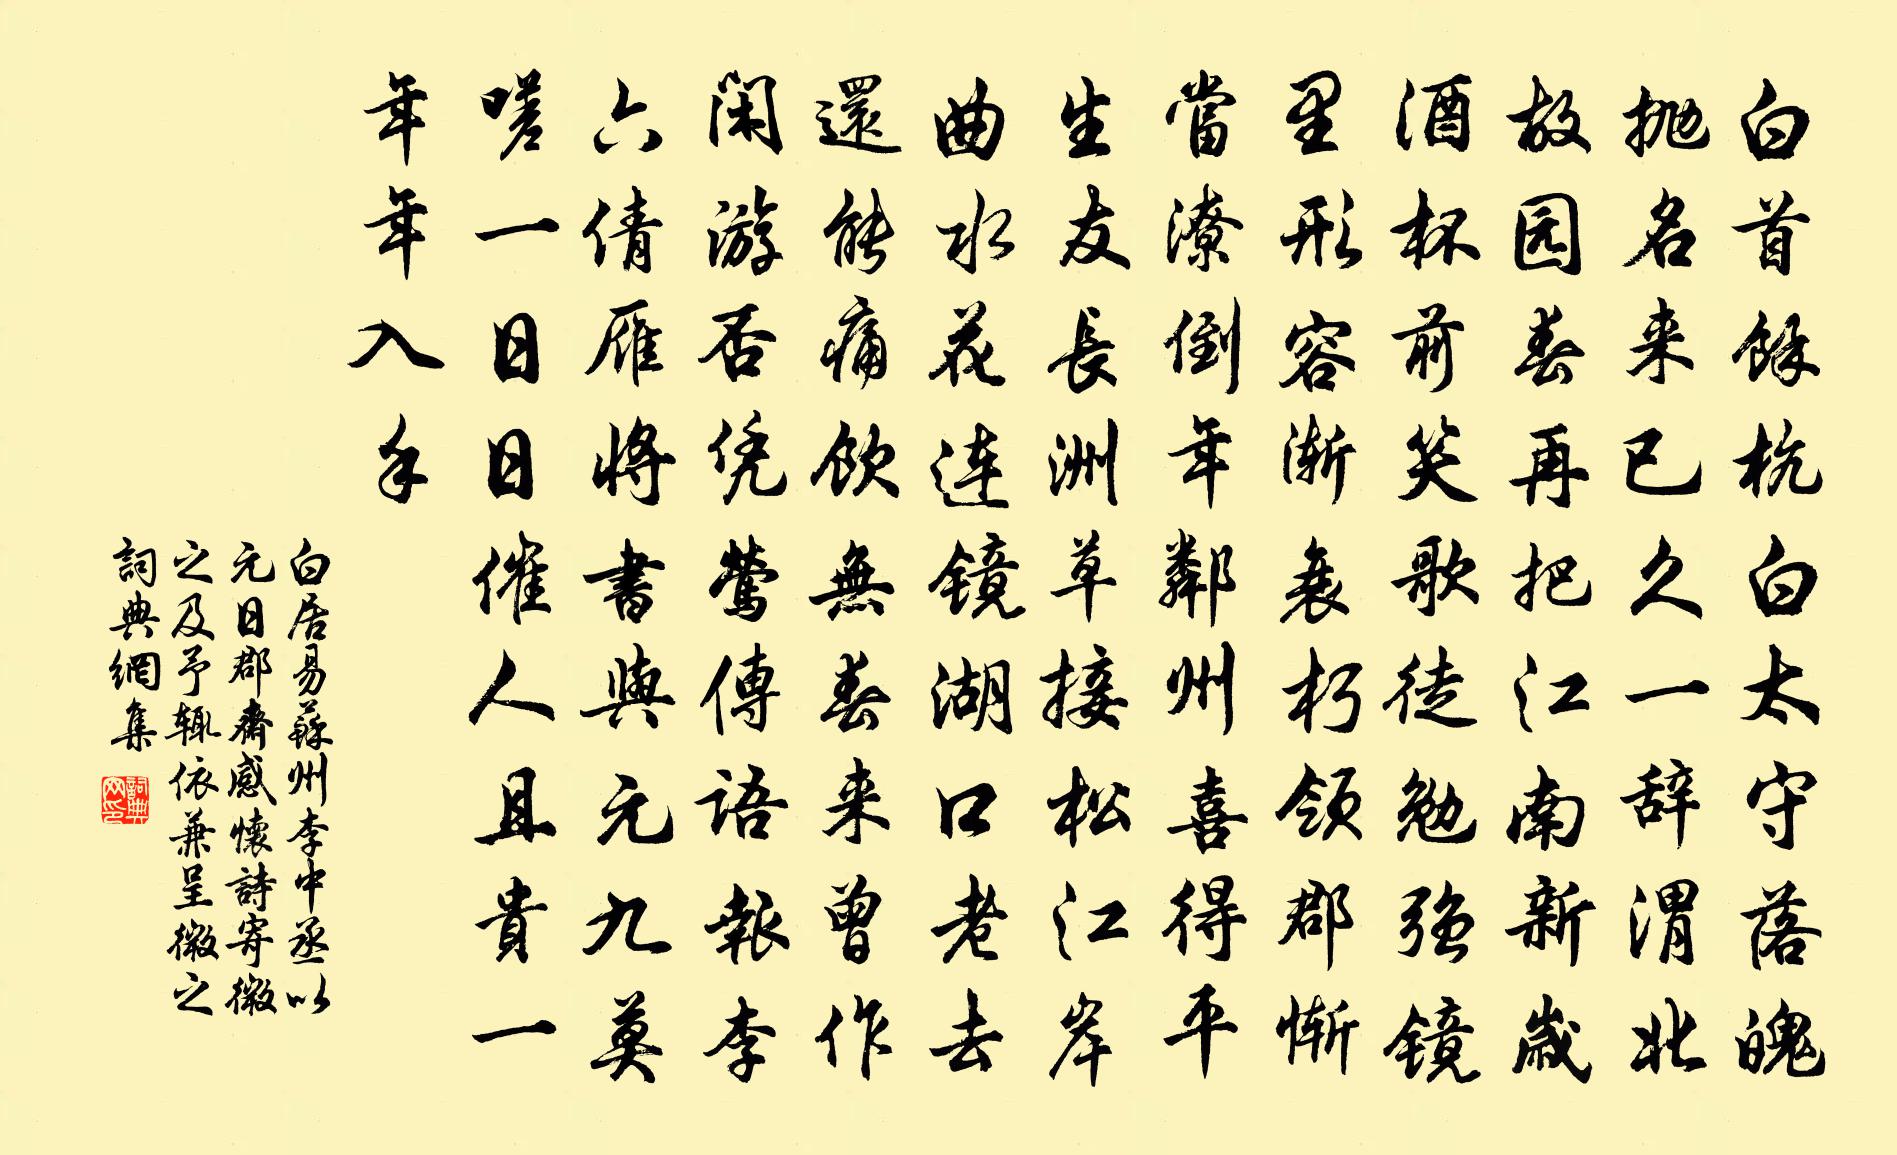 白首餘杭白太守落魄
抛名来已久一辞渭北
故园春再把江南新歲
酒杯前笑歌徒勉强鏡
里形容渐衰朽領郡慚
當潦倒年鄰州喜得平
生友長洲草接松江岸
曲水花连鏡湖口老去
還能痛飲無春来曾作
闲游否凭鶯傳語報李
六倩雁將書與元九莫
嗟一日日催人且貴一
年年入手
白居易蘇州李中丞以
元日郡齋感懷詩寄微
之及予辄依兼呈微之
詞典網集